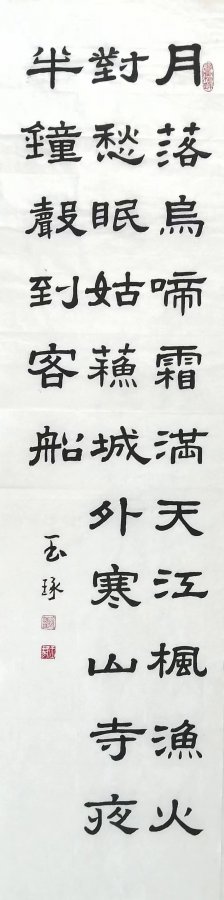 月落烏啼霜滿天江楓漁火
對愁眠姑蘓城外寒山寺夜
半鐘聲到客船
玉琢